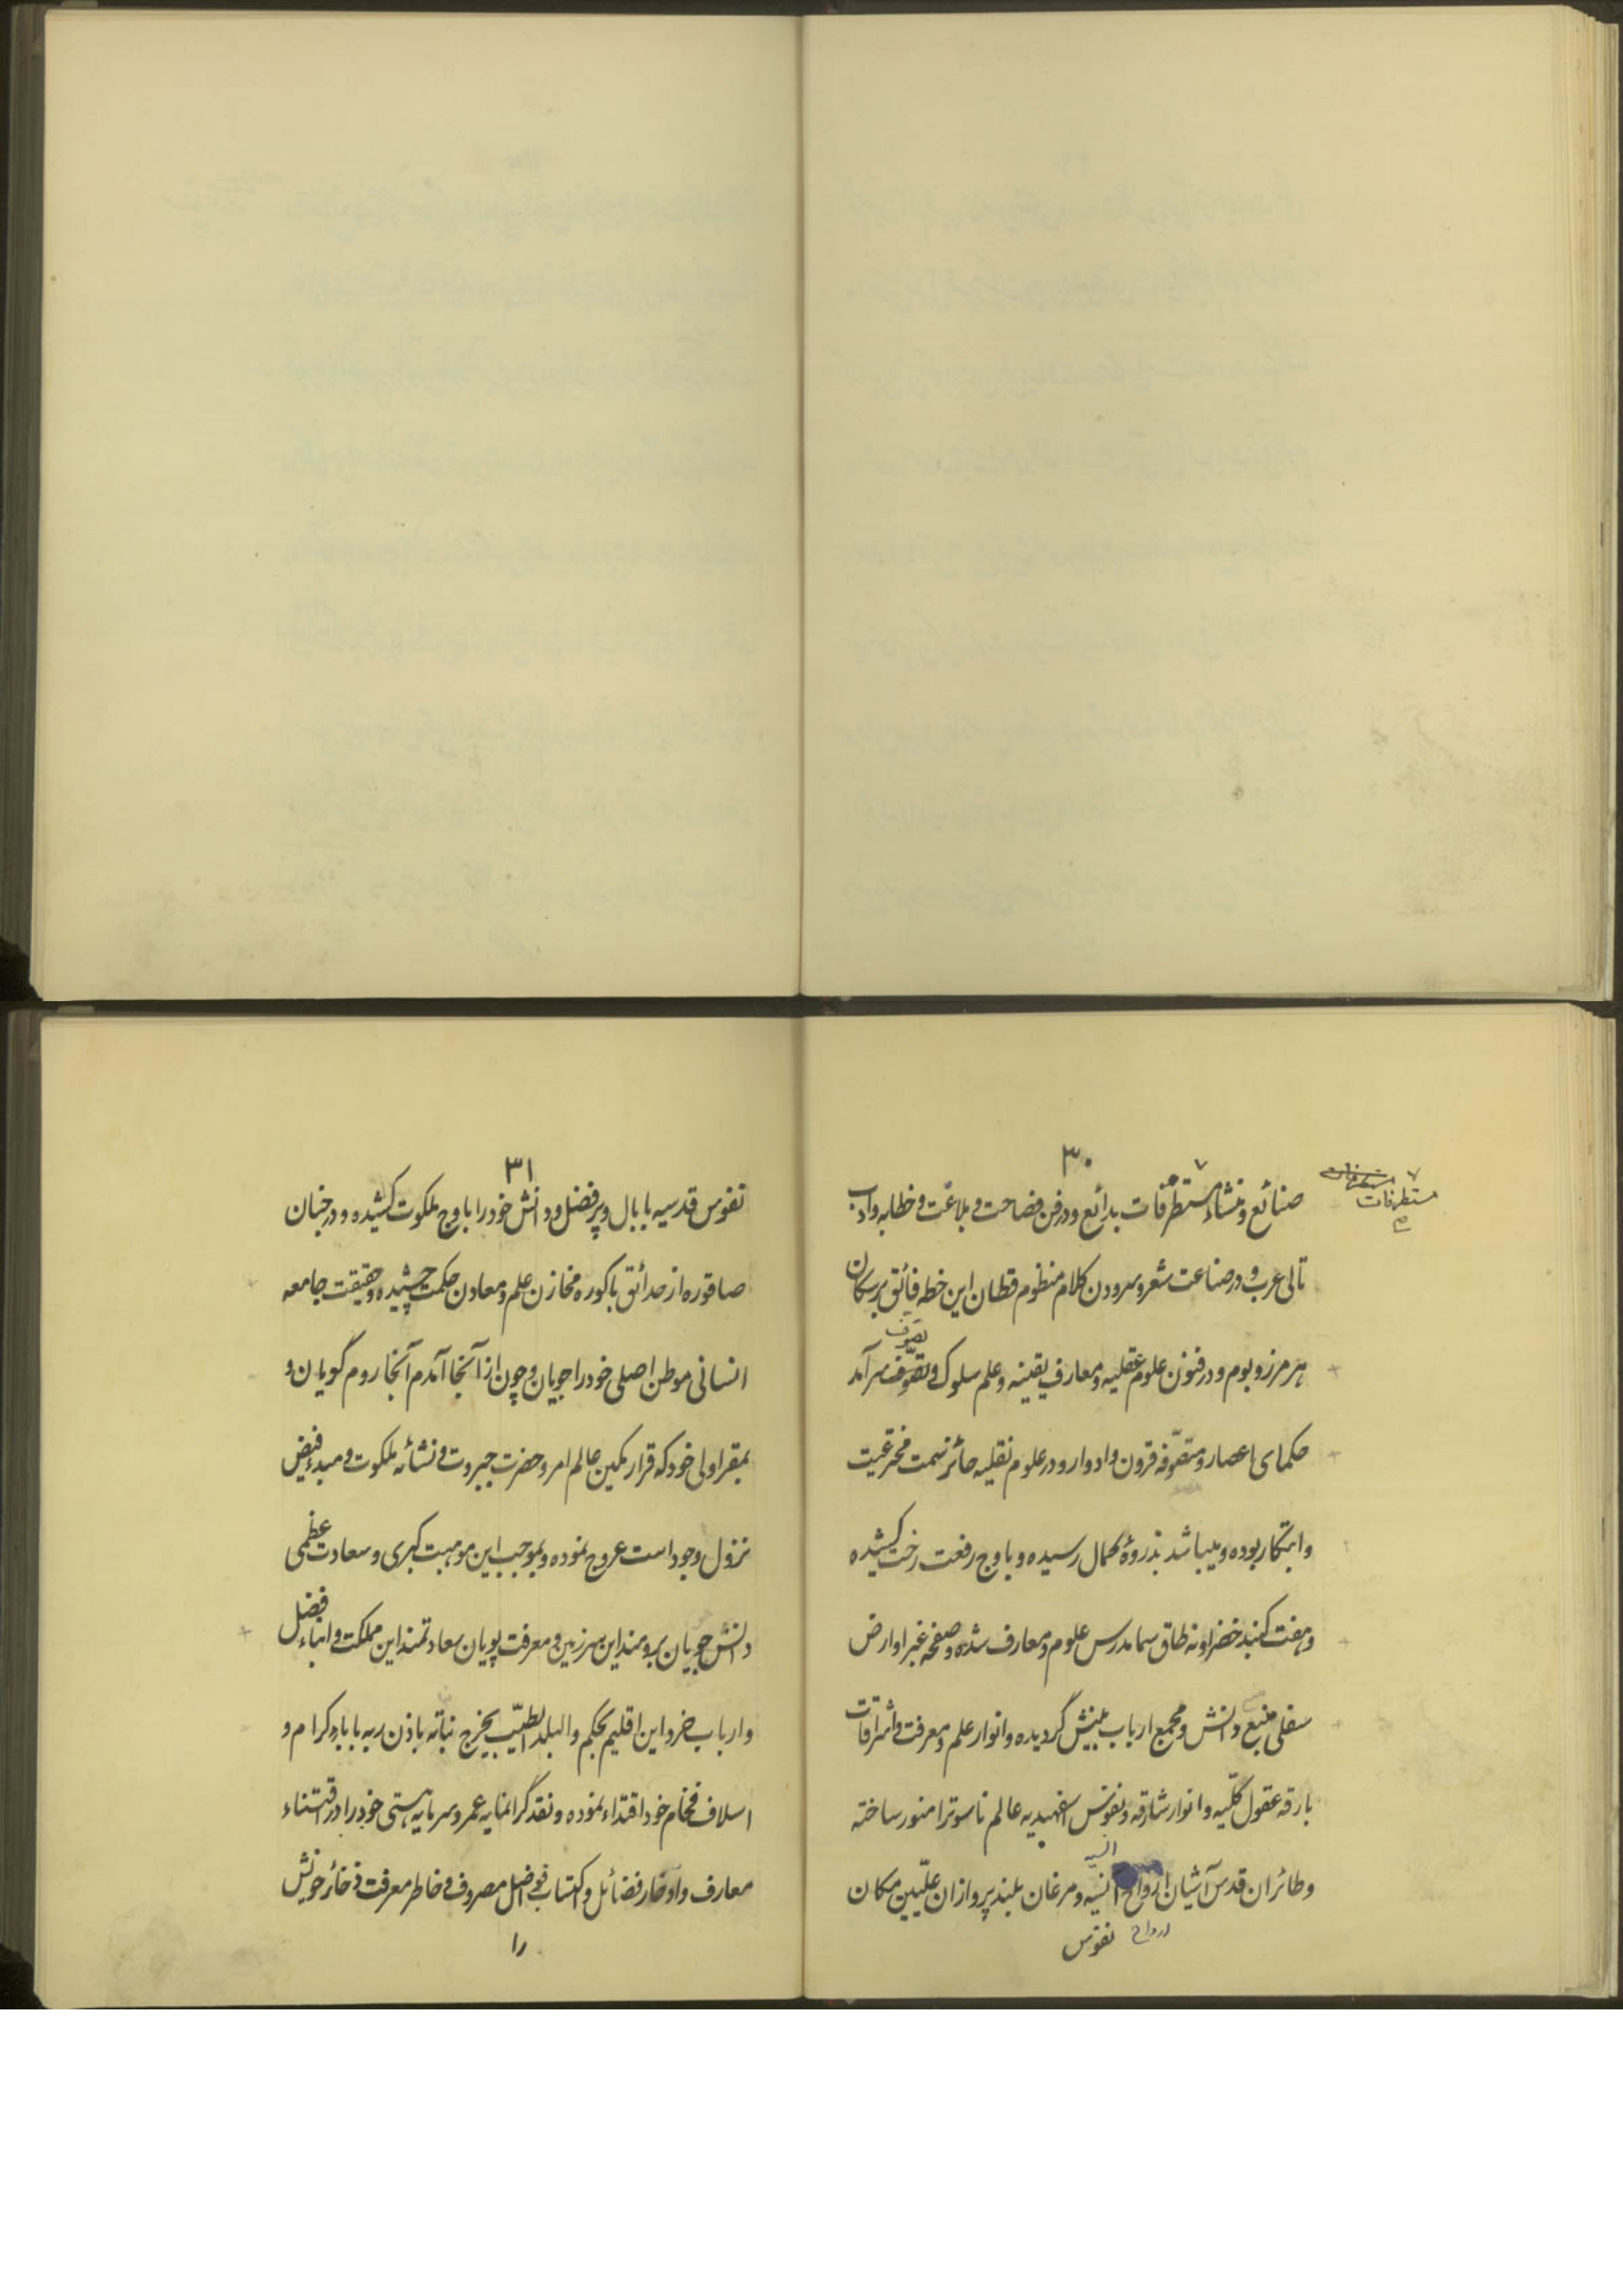 ۳۰
صنائع و منشاء مستطرفات بدائع و در فن فصاحت و بلاغت و خطابه و اداب
مستطرفات
مستطرفات
تالی عرب و در صناعت شعر و سرودن کلام منظوم قطان این خطه فائق بر سکان
هر مرز و بوم و در فنون علوم عقلیه و معارف یقینیه و علم سلوک و تصوّف سرآمد
تصوّف
حکمای اعصار و متصوّفه قرون و ادوار و در علوم نقلیه حائز سمت مخترعیت
و ابتکار بوده و میباشد بذروهٔ کمال رسیده و باوج رفعت رخت کشیده
و هفت گنبد خضرا و نه طاق سما مدرس علوم و معارف شده و صفحه غبرا و ارض
سفلی منبع دانش و مجمع ارباب بینش گردیده و انوار علم و معرفت و اشراقات
بارقه عقول کلّیه و انوار شارقه و نفوس اسفهبدیه عالم ناسوترا منور ساخته
و طائران قدس آشیان ارواح انسیه و مرغان بلند پروازان علّیین مکان
انسیه
ارواح
نفوس
۳۱
نفوس قدسیه با بال و پر فضل و دانش خود را باوج ملکوت کشیده و در جنان
صاقوره از حدائق باکوره مخازن علم و معادن حکمت چشیده و حقیقت جامعه
انسانی موطن اصلی خود را جویان و چون از آنجا آمدم آنجا روم گویان و
بمقر اولی خود که قرار مکین عالم امر و حضرت جبروت و نشائه ملکوت و مبدء فیض
نزول وجود است عروج نموده و بموجب این موهبت کبری و سعادت عظمی
دانش جویان برومند این سرزمین و معرفت پویان سعادتمند این مملکت و ابناء فضل
و ارباب خرد این اقلیم بحکم والبلد الطیّب یخرج نباته باذن ربه باباء کرام و
اسلاف فخام خود اقتداء نموده و نقد گرانمایه عمر و سرمایه هستی خود را در اقتناء
معارف و ادخار فضائل و اکتساب فواضل مصروف و خاطر معرفت ذخائر خویش
را